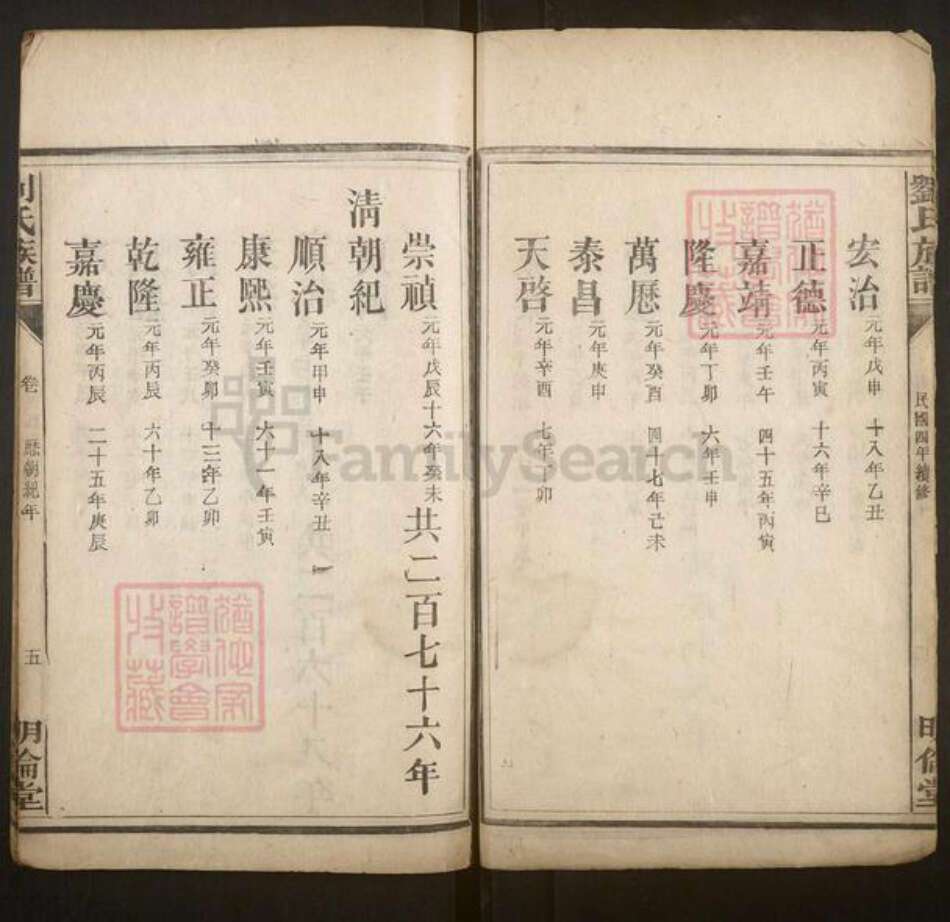 劉氏族譜
民國四年續修
明倫堂
宏治 元年戊申 十八年乙丑
正德 元年丙寅 十六年辛巳
嘉靖 元年壬午 四十五年丙寅
隆慶 元年丁卯 六年壬申
萬厯 元年癸酉 四十七年己未
泰昌 元年庚申
天啓 元年辛酉 七年丁卯
崇禎 元年戊辰十六年癸未 共二百七十六年
清朝紀
順治 元年甲申 十八年辛丑
康熙 元年壬寅 六十一年壬寅
雍正 元年癸卯 十三年乙卯
乾隆 元年丙辰 六十年乙卯
嘉慶 元年丙辰 二十五年庚辰
劉氏族譜
卷 歷朝紀年
五
明倫堂
FamilySearch